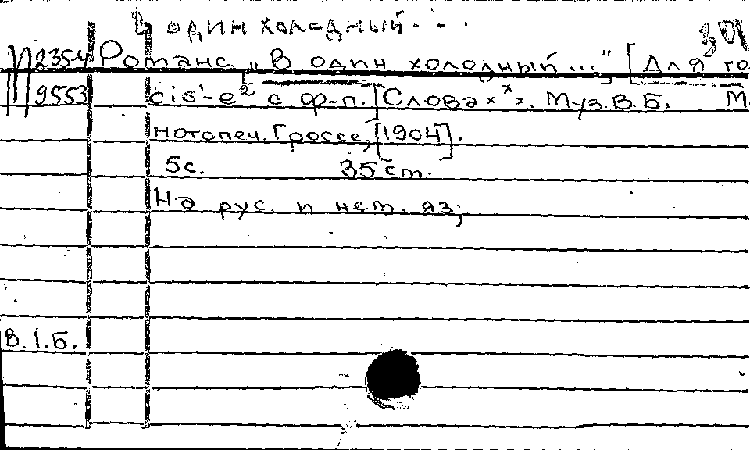 В один холодный...
301
М 2354 Романс „В один холодный...", [Для го
9553 cis¹-e² с ф-п. [Слова ×ˣ×. Муз. В.Б. М.
нотопеч. Гроссе, [1904].
5с. 35 см.
На рус. и нем. яз.
В.1.Б.